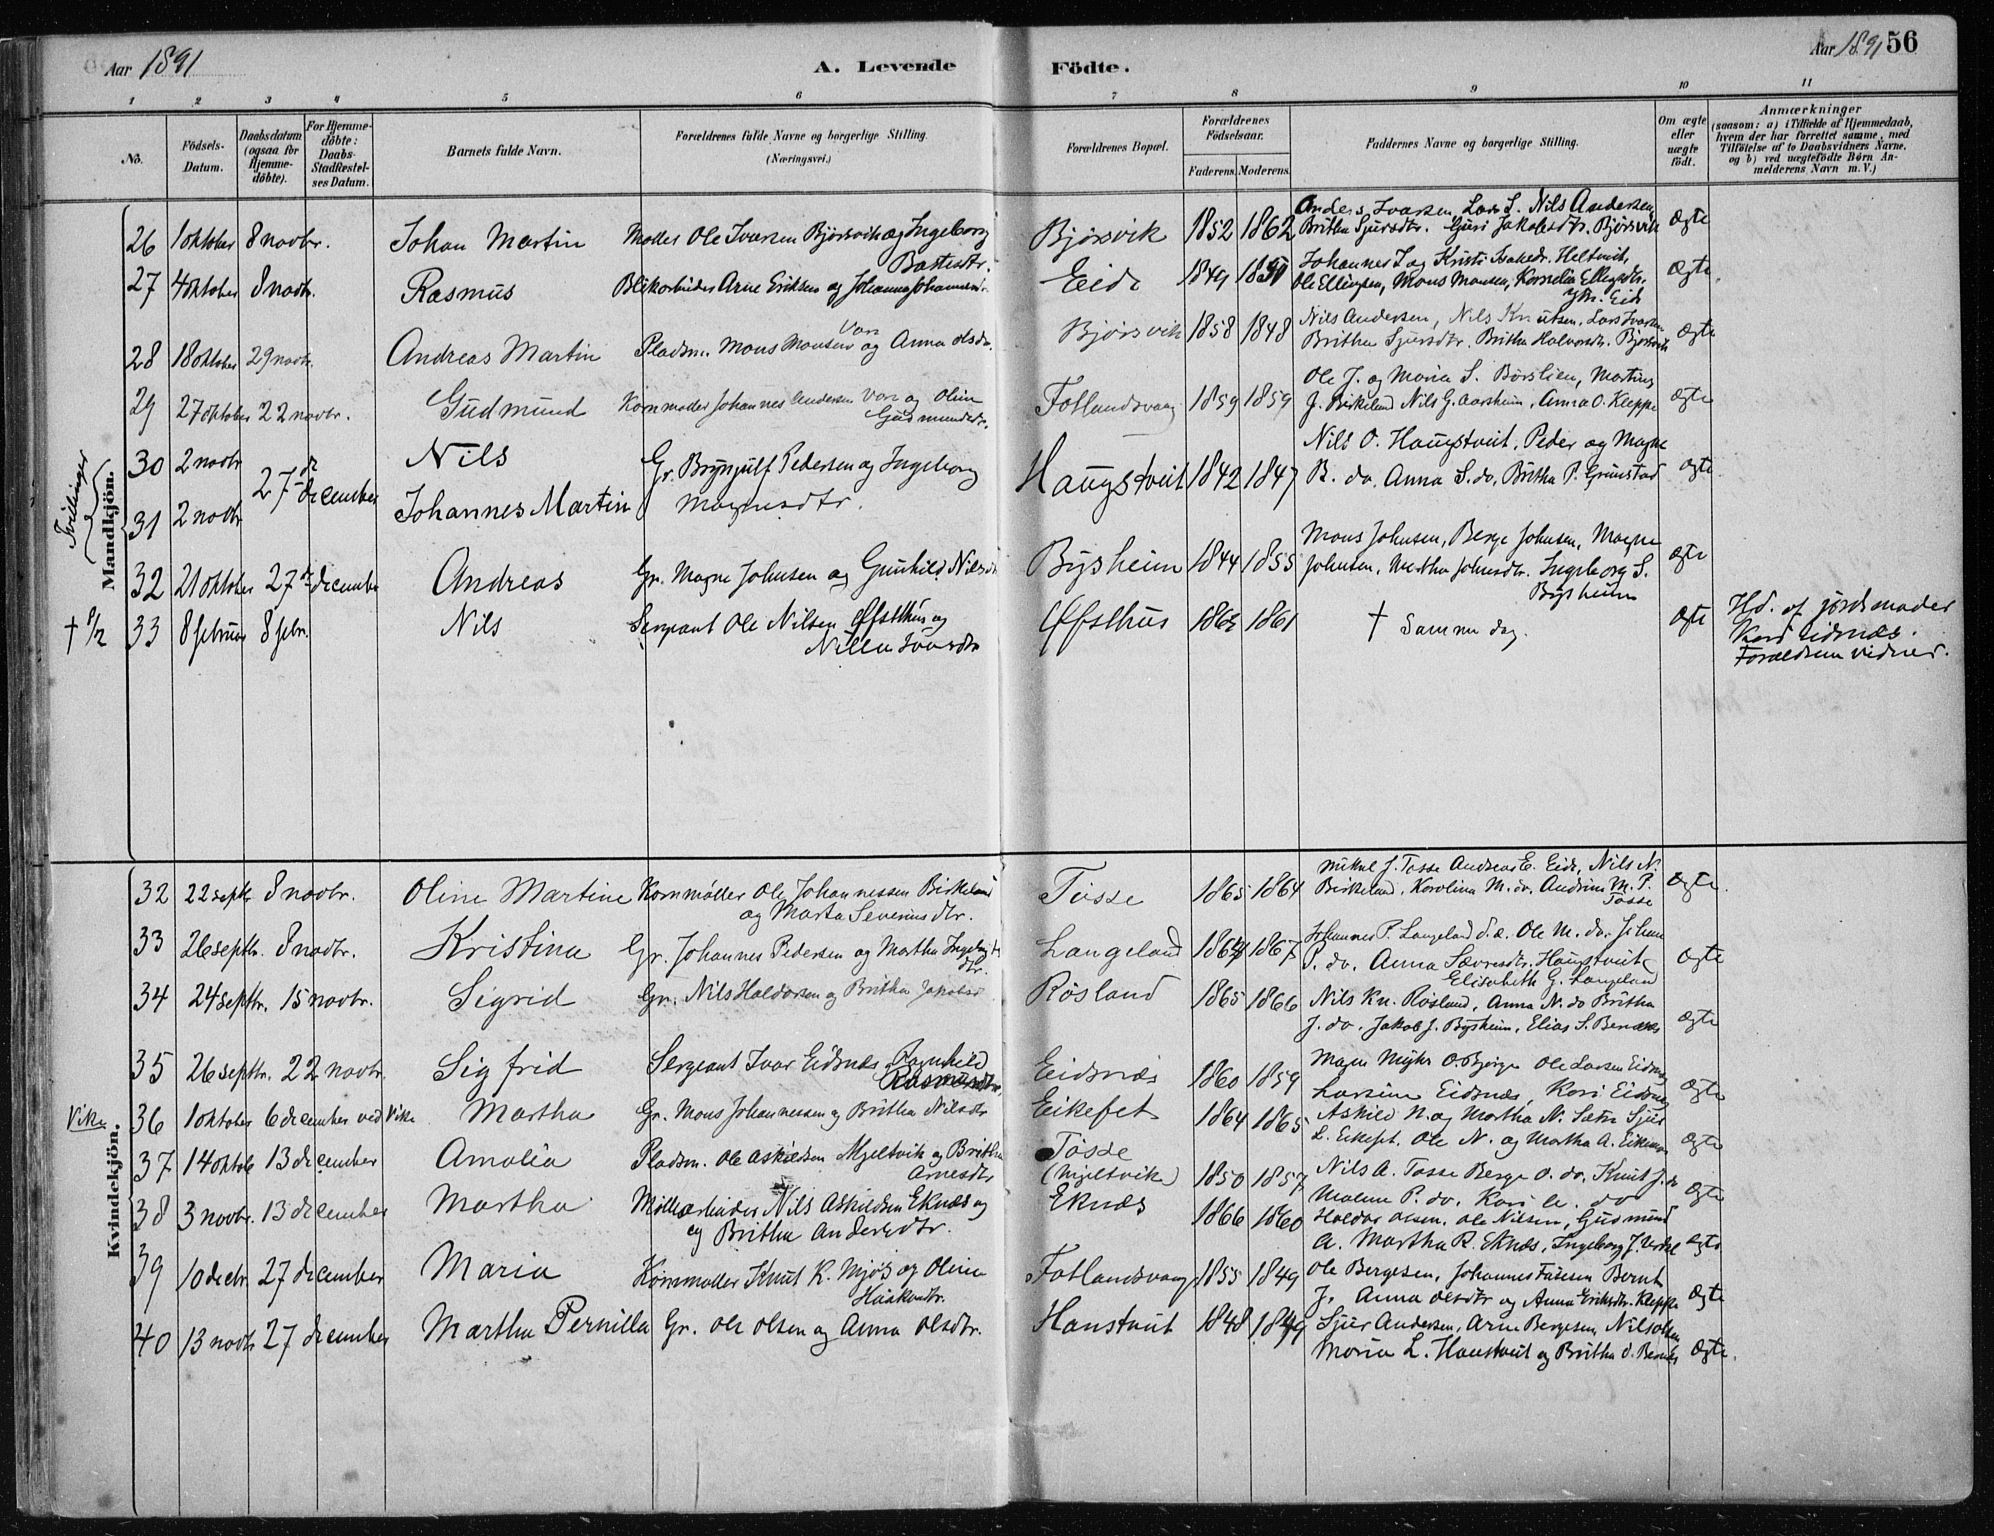 Aar 1891
A. Levende Födte.
Aar 1891 56
1 2 3 4 5 6 7 8 9 10 11
Nö.
Födsels-Datum.
Daabsdatum (ogsaa for Hjemme-döbte).
For Hjemme-döbte: Daabs-Stadfæstel-ses Datum.
Barnets fulde Navn.
Forældrenes fulde Navne og borgerlige Stilling. (Næringsvei.)
Forældrenes Bopæl.
Forældrenes Födselsaar.
Faderens. Moderens.
Faddernes Navne og borgerlige Stilling.
Om ægte eller uægte födt.
Anmærkninger (saasom: a) i Tilfælde af Hjemmedaab, hvem der har forrettet samme, med Tilföielse af to Daabsvidners Navne, og b) ved uægtefödte Börn An-melderens Navn m. V.)
Mandkjön.
Tvillinger
26 1 oktober 8 novbr. Johan Martin Møller Ole Ivarsen Bjørsvik og Ingeborg Bjørsvik 1852 1862 Anders Ivarsen, Lars S. Nils Andersen, ægte
Britha Sjursdtr. Guri Jakobsdtr. Bjørsvik
27 4 oktober 8 novbr. Rasmus Blikarbeider Arne Eriksen og Johanna Johannesdr. Eide 1849 1850 Johannes I og Kristi Heltveit, ægte
Ole Ellingsen, Mons Monsen, Kornelia Ellingsdtr. Eide
28 18 oktober 29 novbr. Andreas Martin Pladsm. Mons Monsen og Anna Olsdr. Bjørsvik 1858 1848 Nils Andersen, Nils Knutsen, Lars Ivarsen ægte
Britha Sjursdtr. Britha Halvorsdtr. Bjørsvik
29 27 oktober 22 novbr. Gudmund Kornmøller Johannes Andersen og Oline Gudmundsdr. Fotlandsvaag 1859 1859 Ole J. og Maria S. Børslien, Martin ægte
J. Birkeland Nils G. Aarsheim, Anna O. Kleppe
30 2 novbr 27de december Nils Gr. Brynjulf Pedersen og Ingeborg Magnesdtr. Haugstveit 1842 1847 Nils O. Haugstveit, Peder og Magne ægte
B. do, Anna S. do, Britha P. Grimstad
31 2 novbr Johannes Martin
32 21 oktober 27de december Andreas Gr. Magne Johnsen og Gunhild Nilsdr Bysheim 1844 1855 Mons Johnsen, Berge Johnsen, Magne ægte
Johnsen, Martha Johnsdtr. Ingeborg S. Bysheim
† 8/2 33 8 februar 8 febr. Nils Sergeant Ole Nilsen Øfsthus og Øfsthus 1863 1861 † Samme dag. ægte Hd. af jordemoder
Kari Eidsnæs.
Forældrene vidner.
Kvindekjön.
32 22 septbr 8 novbr. Oline Martine Kornmøller Ole Johannessen Birkeland Tosse 1865 1864 Mikal J. Tosse Andreas E. Eide, Nils N. ægte.
og Marta Severinsdtr. Birkeland, Karolina M. do, Andrina M. P. Tosse
33 26 septbr. 8 novbr. Kristina Gr. Johannes Pedersen og Martha Ingebrigtsdtr. Langeland 1864 1867 Johannes P. Langeland Ole M. do, Johan ægte
P. do, Anna Haugstveit
Elisabeth G. Langeland
34 24 septbr. 15 novbr. Sigrid Gr. Nils Haldorsen og Britha Jakobsd Røsland 1865 1866 Nils Kn. Røsland, Anna N. do Britha ægte
J. do, Jakob J. Bysheim, Elias S. Bernæs
35 26 septbr. 22 novbr. Sigfrid Sergeant Ivar Eidsnæs Ragnhild Rasmusdtr. Eidsnæs 1860 1859 Ole Larsen Eidsnæs ægte
Larsine Eidsnæs, Kari Eidsnæs
Vike 36 1 oktober 6 december ved Vike Martha Gr. Mons Johannessen og Britha Nilsdtr Eikefet 1864 1865 Askild N. og Martha N. Sætre Sjur ægte
L. Eikefet, Ole N. og Martha A. Eikemo
37 14 oktob 13 december Amalia Pladsm. Ole Askildsen Mjeltvik og Britha Arnesdtr Tosse (Mjeltvik) 1850 1857 Nils A. Tosse Berge O. do, Knut J. do ægte
Malene P. do, Kari A. do
38 3 novbr. 13 december Martha Møllearbeider Nils Askildsen Eknæs og Eknæs 1866 1860 Haldor Olsen, Ole Nilsen, Gudmund ægte
og Britha Andersdtr. A. Martha R. Eknæs, Ingeborg J.
39 10 decbr. 27 december Maria Kornmøller Knut K. Mjøs og Oline Haakonsdtr. Fotlandsvaag 1855 1849 Ole Bergesen, Johannes Bernt ægte
J. Anna Olsdtr og Anna Eriksdtr. Kleppe
40 13 novbr 27 december Martha Pernilla Gr. Ole Olsen og Anna Olsdtr. Hanstveit 1848 1849 Sjur Andersen, Arne Bergesen, Nils Olsen ægte.
Maria L. Hanstveit og Britha O. Bernes